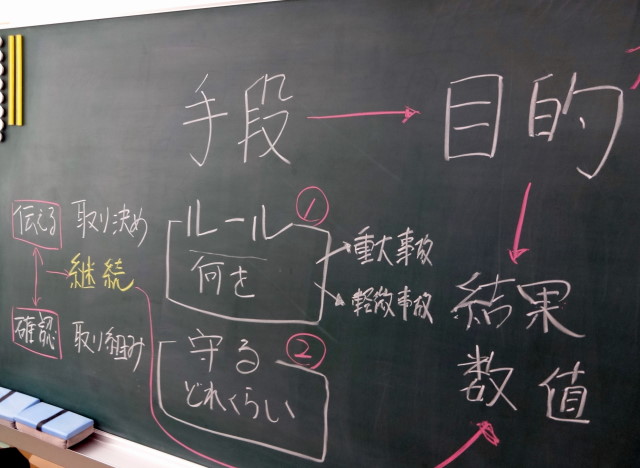 手段 → 目的
伝える 取り決め
継続
確認 取り組み
ルール ①
何を
重大事故
軽微事故
守る ②
どれくらい
結果
数値